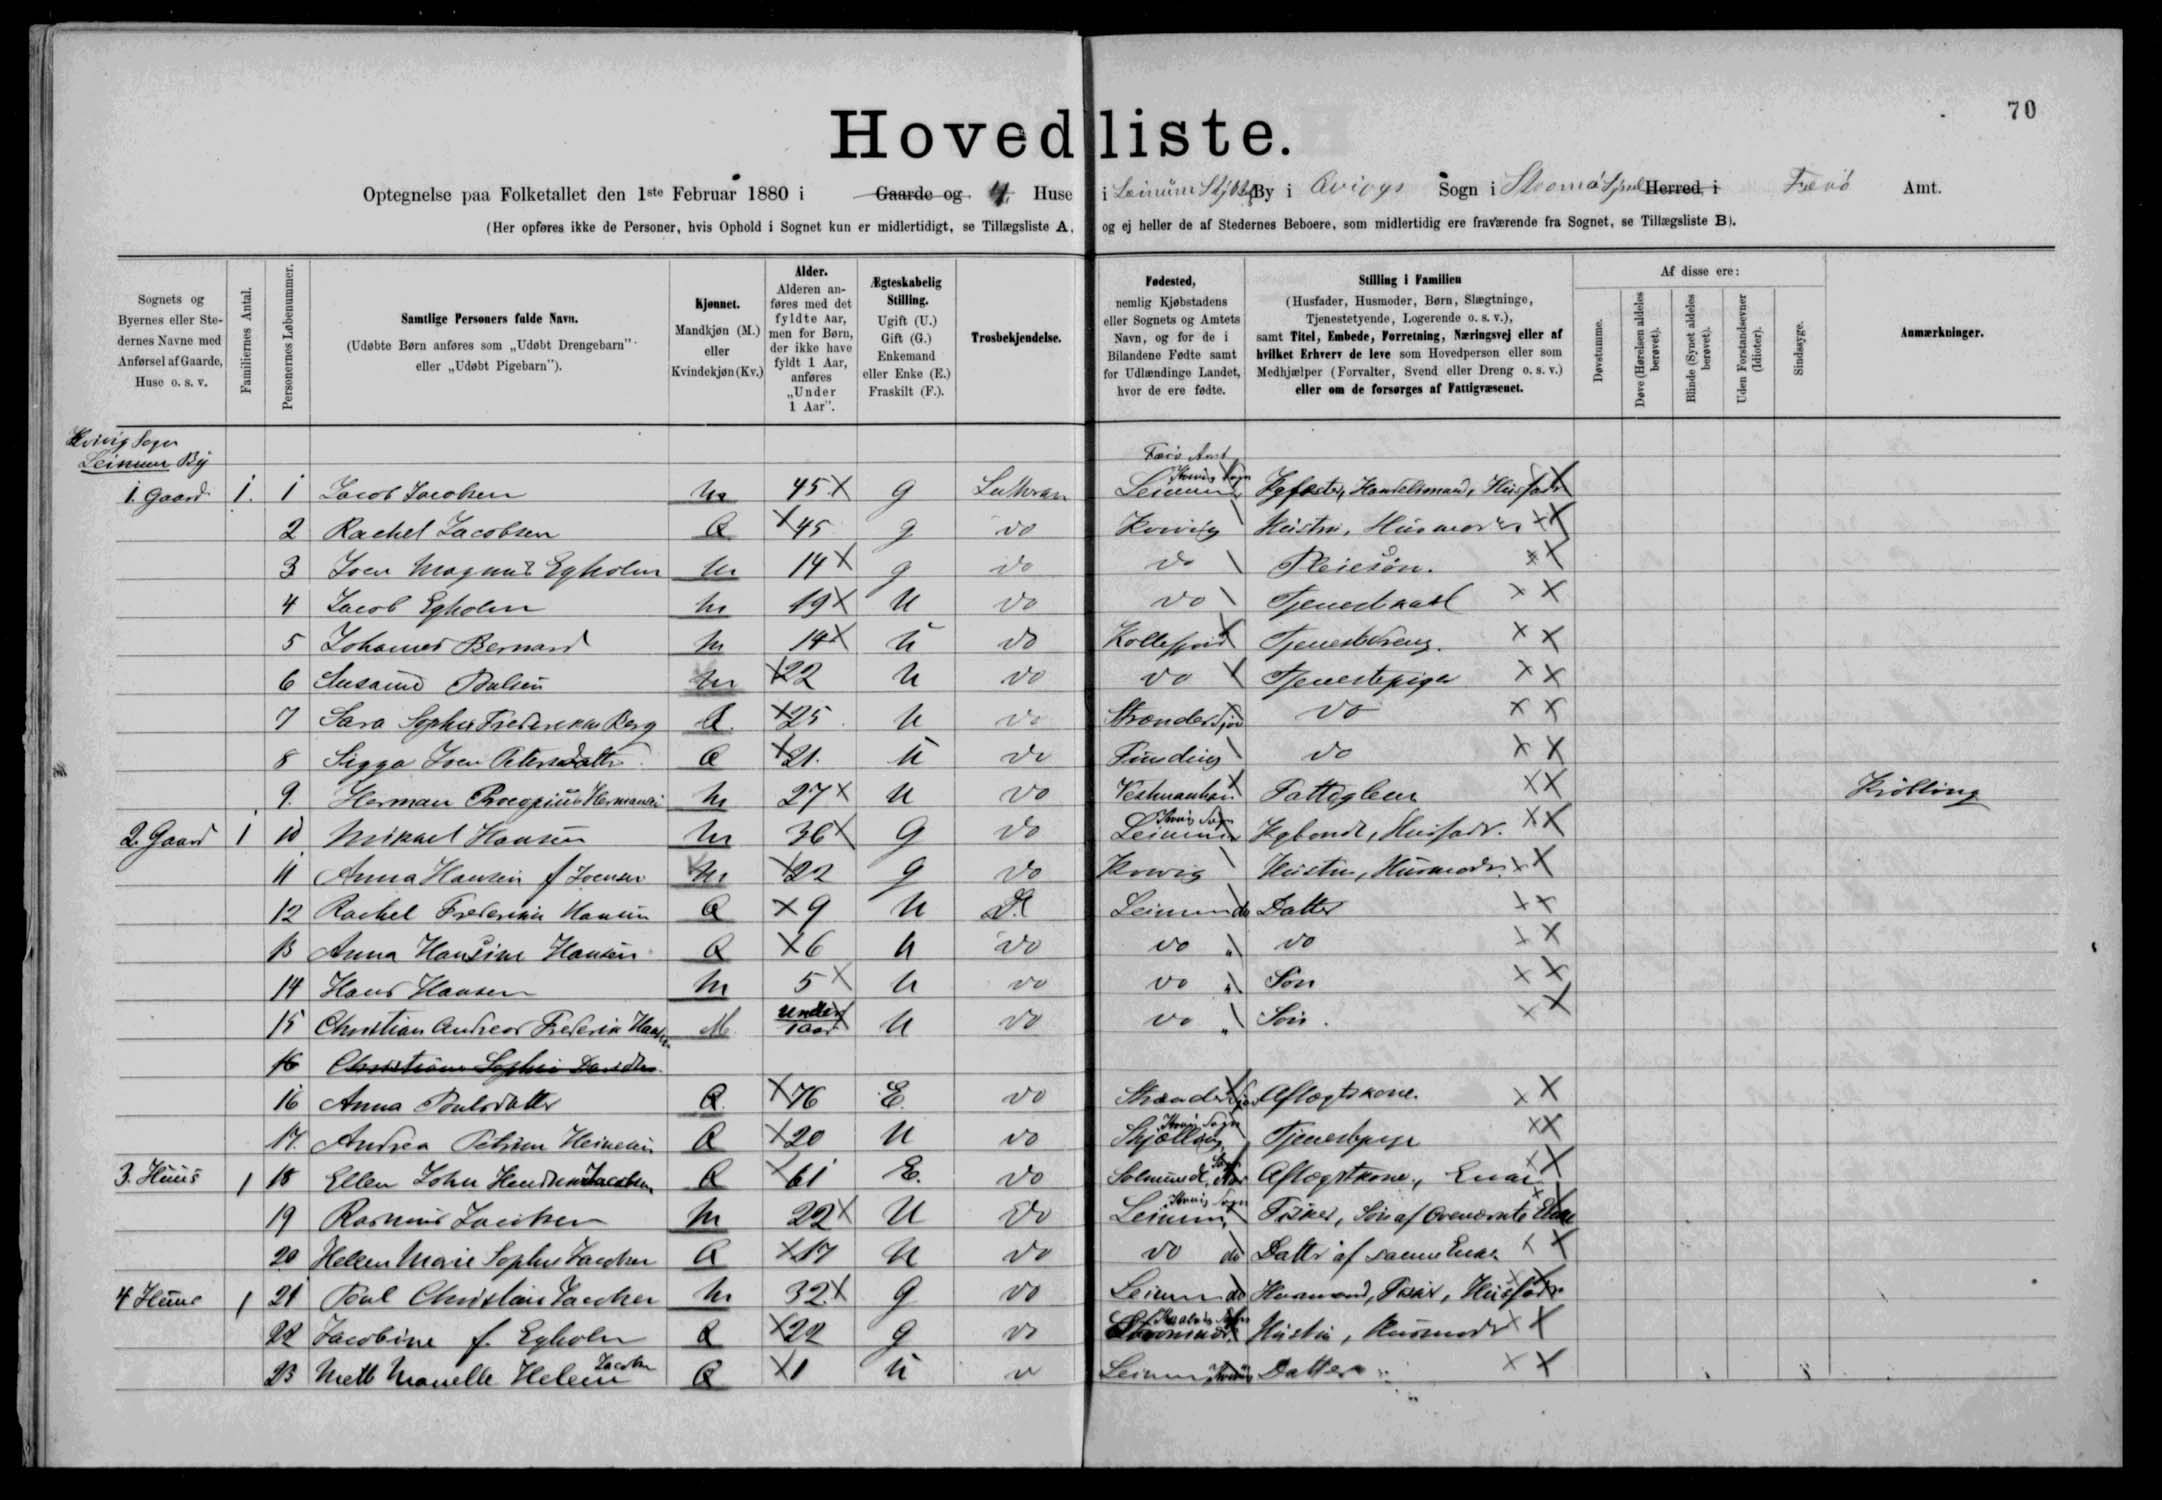 70
Hovedliste.
Optegnelse paa Folketallet den 1ste Februar 1880 i Gaarde og 4 Huse i Leinum By i Qvivigs Sogn i Stromö Syssel Herred, i Færö Amt.
(Her opføres ikke de Personer, hvis Ophold i Sognet kun er midlertidigt, se Tillægsliste A, og ej heller de af Stedernes Beboere, som midlertidig ere fraværende fra Sognet, se Tillægsliste B).
Sognets og Byernes eller Stedernes Navne med Anførsel af Gaarde, Huse o. s. v.
Familiernes Antal.
Personernes Løbenummer.
Samtlige Personers fulde Navn. (Udøbte Børn anføres som „Udøbt Drengebarn" eller „Udøbt Pigebarn").
Kjønnet. Mandkjøn (M.) eller Kvindekjøn (Kv.)
Alder. Alderen anføres med det fyldte Aar, men for Børn, der ikke have fyldt 1 Aar, anføres „Under 1 Aar".
Ægteskabelig Stilling. Ugift (U.) Gift (G.) Enkemand eller Enke (E.) Fraskilt (F.).
Trosbekjendelse.
Fødested, nemlig Kjøbstadens eller Sognets og Amtets Navn, og for de i Bilandene Fødte samt for Udlændinge Landet, hvor de ere fødte.
Stilling i Familien (Husfader, Husmoder, Børn, Slægtninge, Tjenestetyende, Logerende o. s. v.), samt Titel, Embede, Forretning, Næringsvej eller af hvilket Erhverv de leve som Hovedperson eller som Medhjælper (Forvalter, Svend eller Dreng o. s. v.) eller om de forsørges af Fattigvæsenet.
Af disse ere:
Døvstumme.
Døve (Hørelsen aldeles berøvet).
Blinde (Synet aldeles berøvet).
Uden Forstandsevner (Idioter).
Sindssyge.
Anmærkninger.
Kvivig Sogn
Leinum By
Færö Amt
1. Gaard 1. 1 Jacob Jacobsen M 45 X G Luthersan Leinum Kvivig Sogn Handelsmand, Husfader X
2 Rachel Jacobsen Q X 45 g do Kvivig Hustru, Husmoder X X
3 Joen Magnus Egholm M 14 X g do do Pleiesön. X X
4 Jacob Egholm M 19 X U do do Tjenestekarl X X
5 Johannes Bernard M 14 X U do Kollefjord Tjenestedreng. X X
6 Susanne Poulsen M X 22 U do do Tjenestepige X X
7 Sara Sophie Frederikke Berg Q. X 25. U do Strænder do X X
8 Sigga Joen Petersdatter Q X 21. U do Funding do X X
9. Herman Procopius Hermansen M 27 X U do Vestmanhavn Fattiglem X X Krobling
2. Gaard 1 10 Mikkel Hansen M 36 X G do Leinum Kvivig Sogn Kgbonde, Husfader. X X
11 Anna Hansen f Joensen M X 22 g do Kvivig Hustru, Husmoder. X X
12 Rachel Frederikke Hansen Q X 9 U do Leinum do Datter X X
13 Anna Hansine Hansen Q X 6 U do do " do X X
14 Hans Hansen M 5 X U do do " Sön X X
15 Christian Andreas Frederik Hansen M. under 1 aar U do do " Sön. X X
16 Christiane Sophie
16 Anna Poulsdatter Q. X 76 E. do Strænder Aflægtskone. X X
17. Andrea Petrine Heinesen Q X 20 U do Skjælling Kvivig Sogn Tjenestepige X X
3. Huus 1 18 Ellen John Jacobsen Q X 61 E. do Solmunde Aflægtskone, Enke X X
19 Rasmus Jacobsen M 22 X U do Leinum Kvivig Sogn Fisker, Sön af ovennævnte Enke
20 Hellen Marie Sophie Jacobsen Q X 17 U do do do Datter af samme Enke X X
4 Huus 1 21 Poul Christian Jacobsen M 32. X G do Leinum do Huusmand, Fisker, Husfader
22 Jacobine f. Egholm Q X 22 g do Hustru, Husmoder X X
23 Mette Helene Jacobsen Q X 1 U do Leinum Kvivig Datter X X